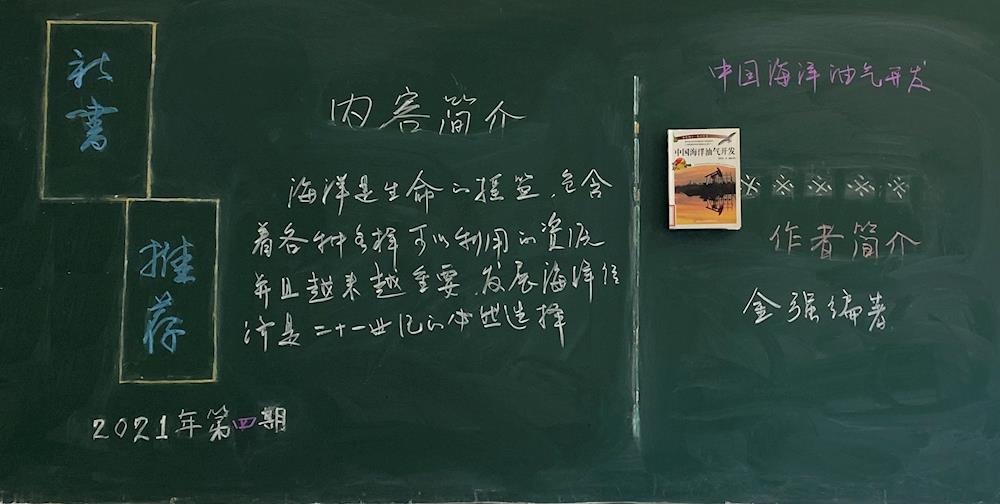 新书
推荐
2021年第四期
内容简介
海洋是生命的摇篮，包含
着各种各样可以利用的资源
并且越来越重要，发展海洋经
济是二十一世纪的必然选择
中国海洋油气开发
中国海洋油气开发
作者简介
金强编著